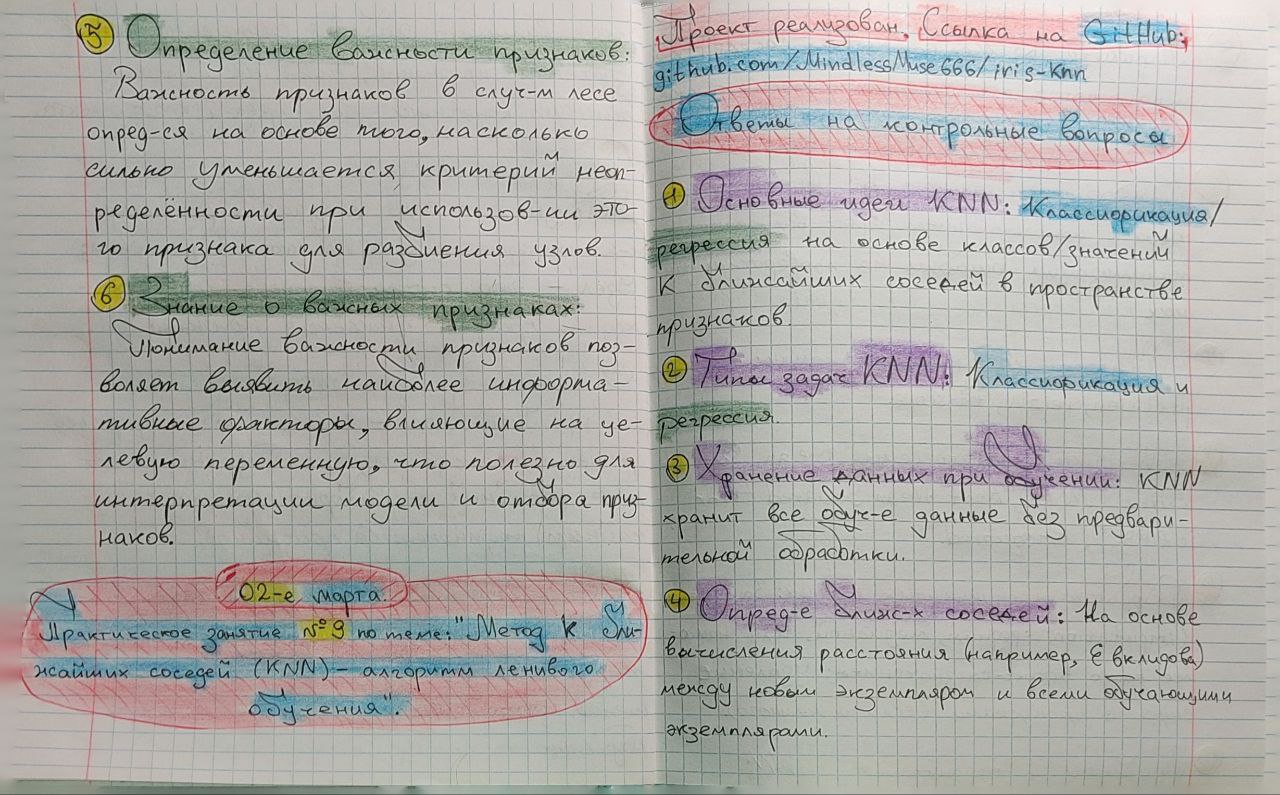 5 Определение важности признаков:
Важность признаков в случ-м лесе
опред-ся на основе того, насколько
сильно уменьшается критерий неоп-
ределённости при использов-ии это-
го признака для разбиения узлов.
6 Знание о важных признаках:
Понимание важности признаков поз-
воляет выявить наиболее информа-
тивные факторы, влияющие на це-
левую переменную, что полезно для
интерпретации модели и отбора приз-
наков.
02-е марта.
Практическое занятие №9 по теме: "Метод К бли-
жайших соседей (KNN) – алгоритм ленивого
обучения".
Проект реализован. Ссылка на GitHub:
github.com/MindlessMuse666/iris-knn
Ответы на контрольные вопросы
1 Основные идеи KNN: Классификация/
регрессия на основе классов/значений
К ближайших соседей в пространстве
признаков.
2 Типы задач KNN: Классификация и
регрессия.
3 Хранение данных при обучении: KNN
хранит все обуч-е данные без предвари-
тельной обработки.
4 Опред-е ближ-х соседей: На основе
вычисления расстояния (например, Евклидова)
между новым экземпляром и всеми обучающими
экземплярами.